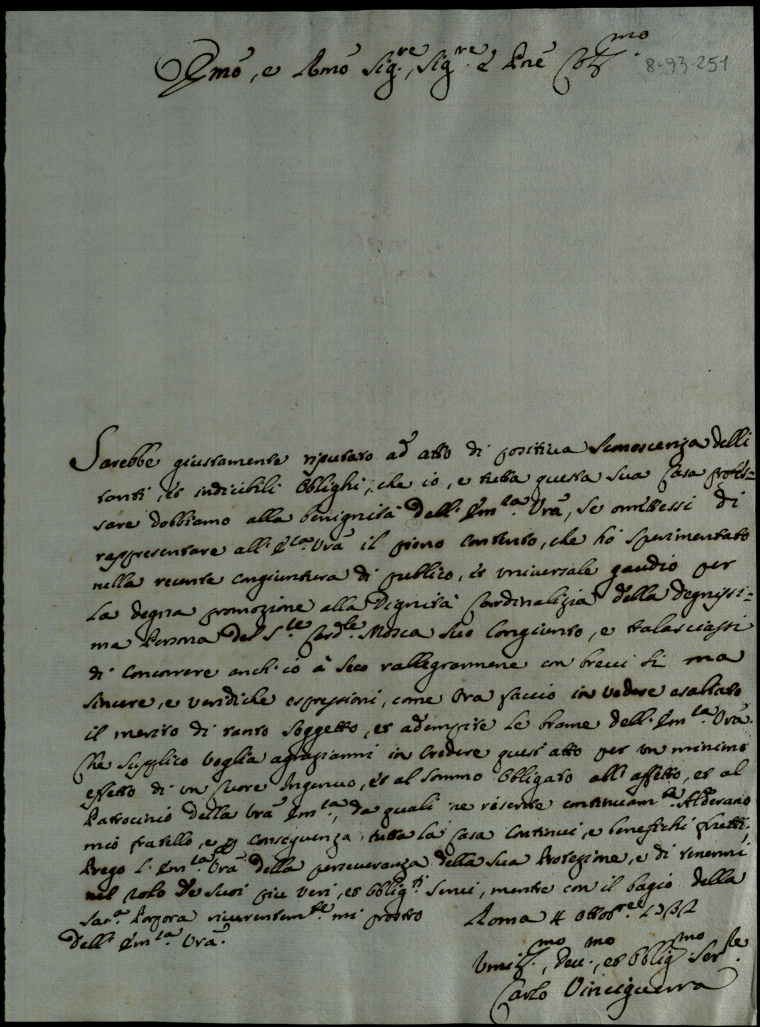 Emo, e Rmo Sig.re, Sig.re e Pne Col.mo
8-93-251
Sarebbe giustamente riputato ad atto di positiva sconoscenza delli
tanti, et indicibili oblighi, che io, e tutta questa sua Casa profes=
sare dobbiamo alla benignità dell'Em.za Vra, se omettessi di
rappresentare all'E.za Vra il pieno contento, che hò sperimentato
nella recente congiuntura di publico, et universale gaudio per
la degna promozione alla Dignità Cardinalizia della degnissi=
ma Persona del S.re Card.le Mosca suo Congiunto, e tralasciassi
di concorrere anch'io à seco rallegrarmene con brevi sì ma
sincere, e veridiche espressioni, come ora faccio in vedere esaltato
il merito di tanto soggetto, et adempite le brame dell'Em.za Vra.
Che supplico voglia agraziarmi in credere quest'atto per un minimo
effetto di un Cuore Ingenuo, et al sommo obligato all'affetto, et al
Patrocinio della Vra Em.za, da quali ne risente continuam.te Alderano
mio fratello, e p conseguenza tutta la casa continui, e benefichi frutti.
Prego l'Em.za Vra della perseveranza della sua Protezione, e di tenermi
nel rolo de suoi piu veri, et oblig.ti servi, mentre con il bagio della
Sac.a Porpora riverentem.te mi protto Roma 4 Ottob.re 1732
Dell'Em.za Vra.
Umil.mo, Dev.mo, et Oblig.mo Ser.re
Carlo Vinciguerra